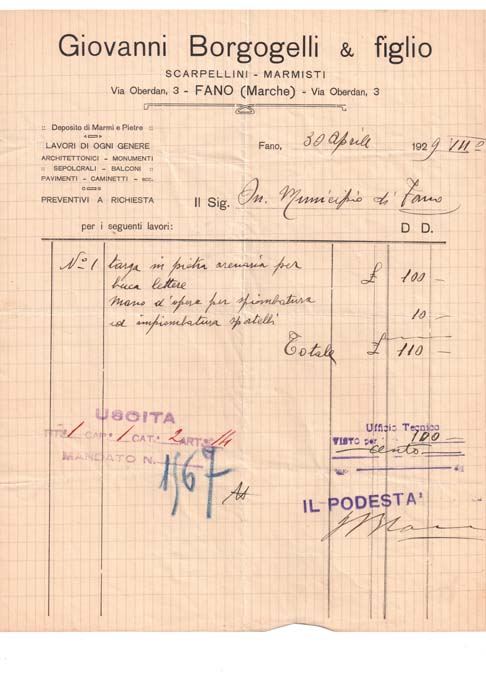 Giovanni Borgogelli & figlio
SCARPELLINI - MARMISTI
Via Oberdan, 3 - FANO (Marche) - Via Oberdan, 3
Deposito di Marmi e Pietre
LAVORI DI OGNI GENERE
ARCHITETTONICI - MONUMENTI
SEPOLCRALI - BALCONI
PAVIMENTI - CAMINETTI - ecc.
PREVENTIVI A RICHIESTA
Fano, 30 Aprile 1929 VII°
Il Sig. On. Municipio di Fano
per i seguenti lavori: D D.
N° 1 targa in pietra arenaria per £ 100 —
buca lettere
mano d'opera per spiombatura 10 —
ed impiombatura spatelli
Totale £ 110 —
USCITA
TIT. 1 CAP. 1 CAT. 2 ART. 14
MANDATO N. 1567
Ufficio Tecnico
VISTO per 100 —
cento
IL PODESTA'